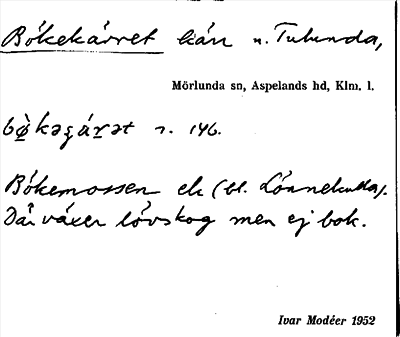 Bökekärret kärr n. Tulunda,
Mörlunda sn, Aspelands hd, Klm. l.
r. 146.
Bökemossen ek (bl. Lönnekulla).
Där växer lövskog men ej bok.
Ivar Modéer 1952